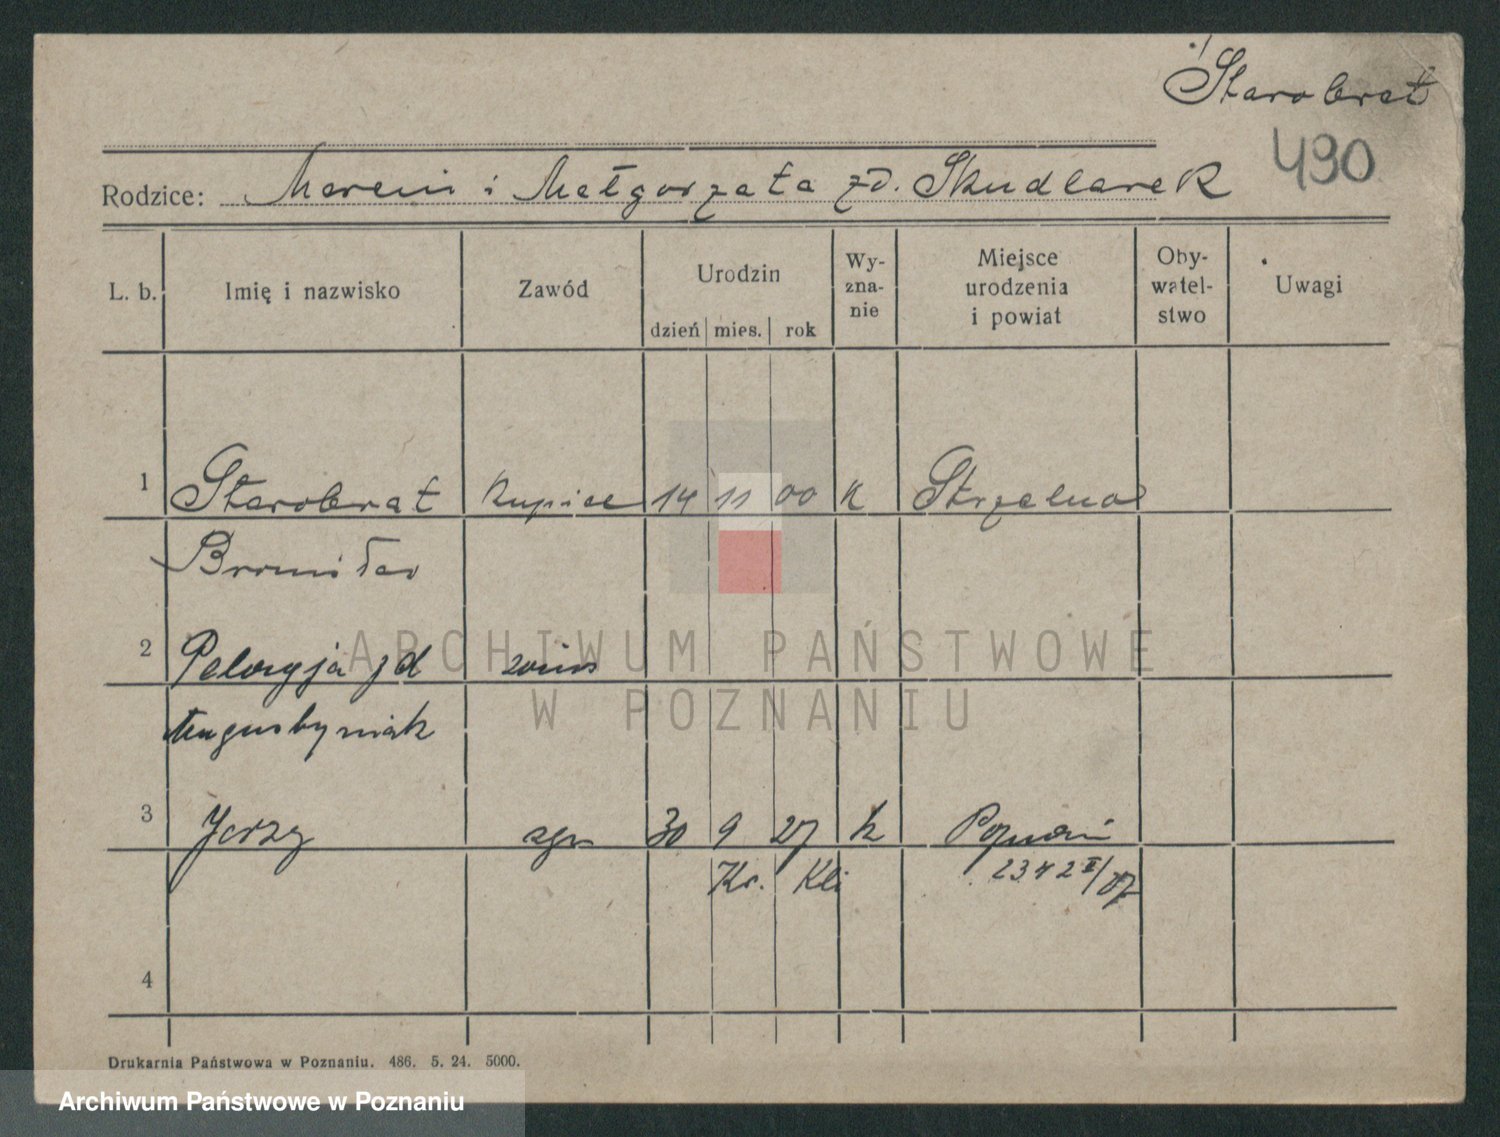 Starobrat
490
Rodzice: Marcin i Małgorzata zd. Skudlarek
L. b. Imię i nazwisko Zawód Urodzin dzień mies. rok Wy-zna-nie Miejsce urodzenia i powiat Oby-watel-stwo Uwagi
1 Starobrat kupiec 14 11 00 K Strzelno
Bronisław
2 Pelagja zd
Augustyniak
3 Jerzy 30 9 27 k Poznań
Kr. Kli 2342 II/07
4
Drukarnia Państwowa w Poznaniu. 486. 5. 24. 5000.
ARCHIWUM PAŃSTWOWE
W POZNANIU
Archiwum Państwowe w Poznaniu